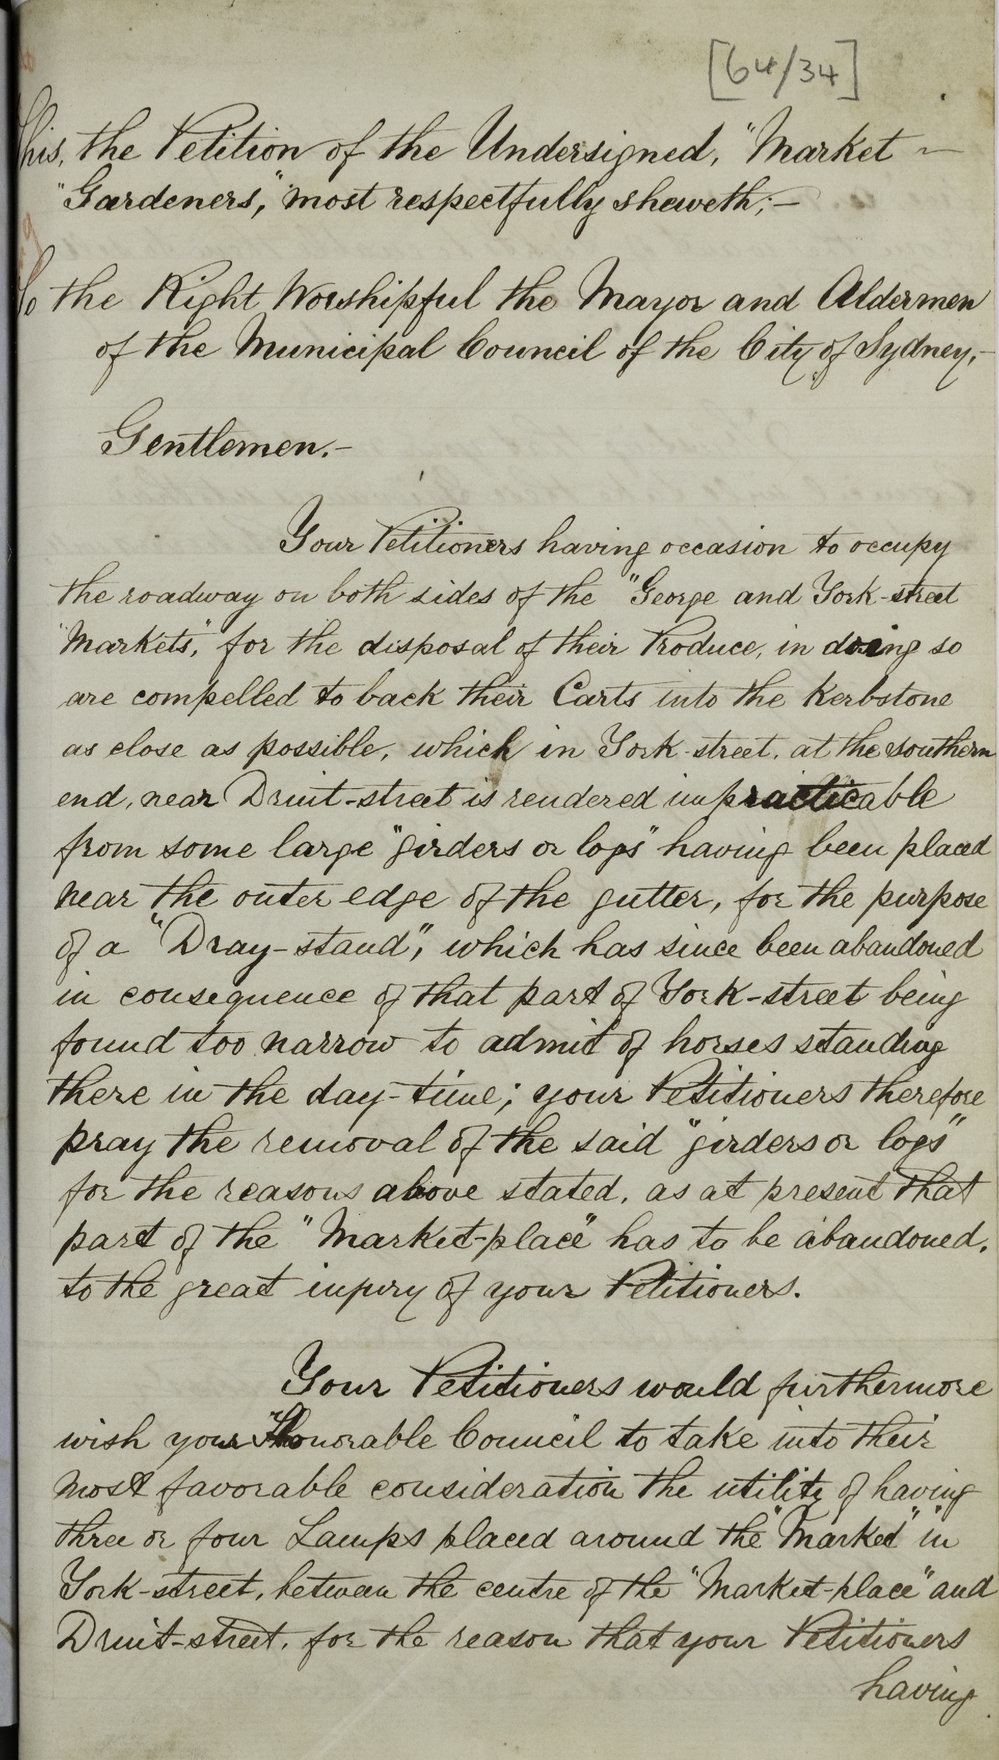 [64/34]
This, the Petition of the Undersigned, "Market
"Gardeners," most respectfully sheweth;—
To the Right Worshipful the Mayor and Aldermen
of the Municipal Council of the City of Sydney,—
Gentlemen.—
Your Petitioners having occasion to occupy
the roadway on both sides of the "George and York-street
"Markets," for the disposal of their Produce, in doing so
are compelled to back their Carts into the Kerbstone
as close as possible, which in York-street, at the southern
end, near Druit-street is rendered impracticable
from some large "girders or logs" having been placed
near the outer edge of the gutter, for the purpose
of a "Dray-stand", which has since been abandoned
in consequence of that part of York-street being
found too narrow to admit of horses standing
there in the day-time; your Petitioners therefore
pray the removal of the said "girders or logs"
for the reasons above stated, as at present that
part of the "Market-place" has to be abandoned,
to the great injury of your Petitioners.
Your Petitioners would furthermore
wish your Honorable Council to take into their
most favorable consideration the utility of having
three or four Lamps placed around the "Market" in
York-street, between the centre of the "Market-place" and
Druit-street, for the reason that your Petitioners
having